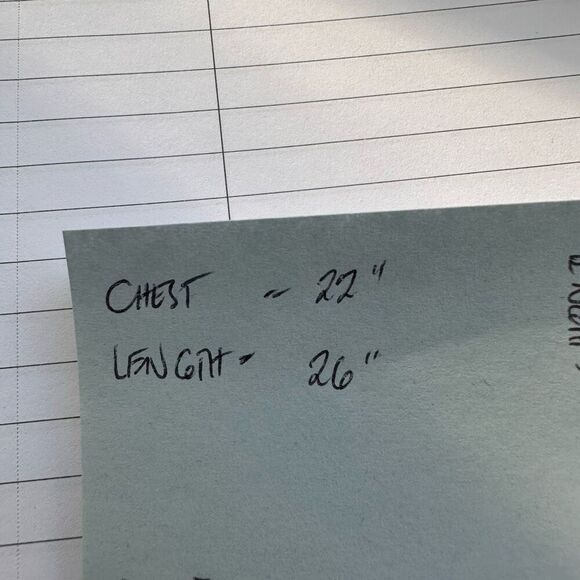 CHEST - 22"
LENGTH - 26"